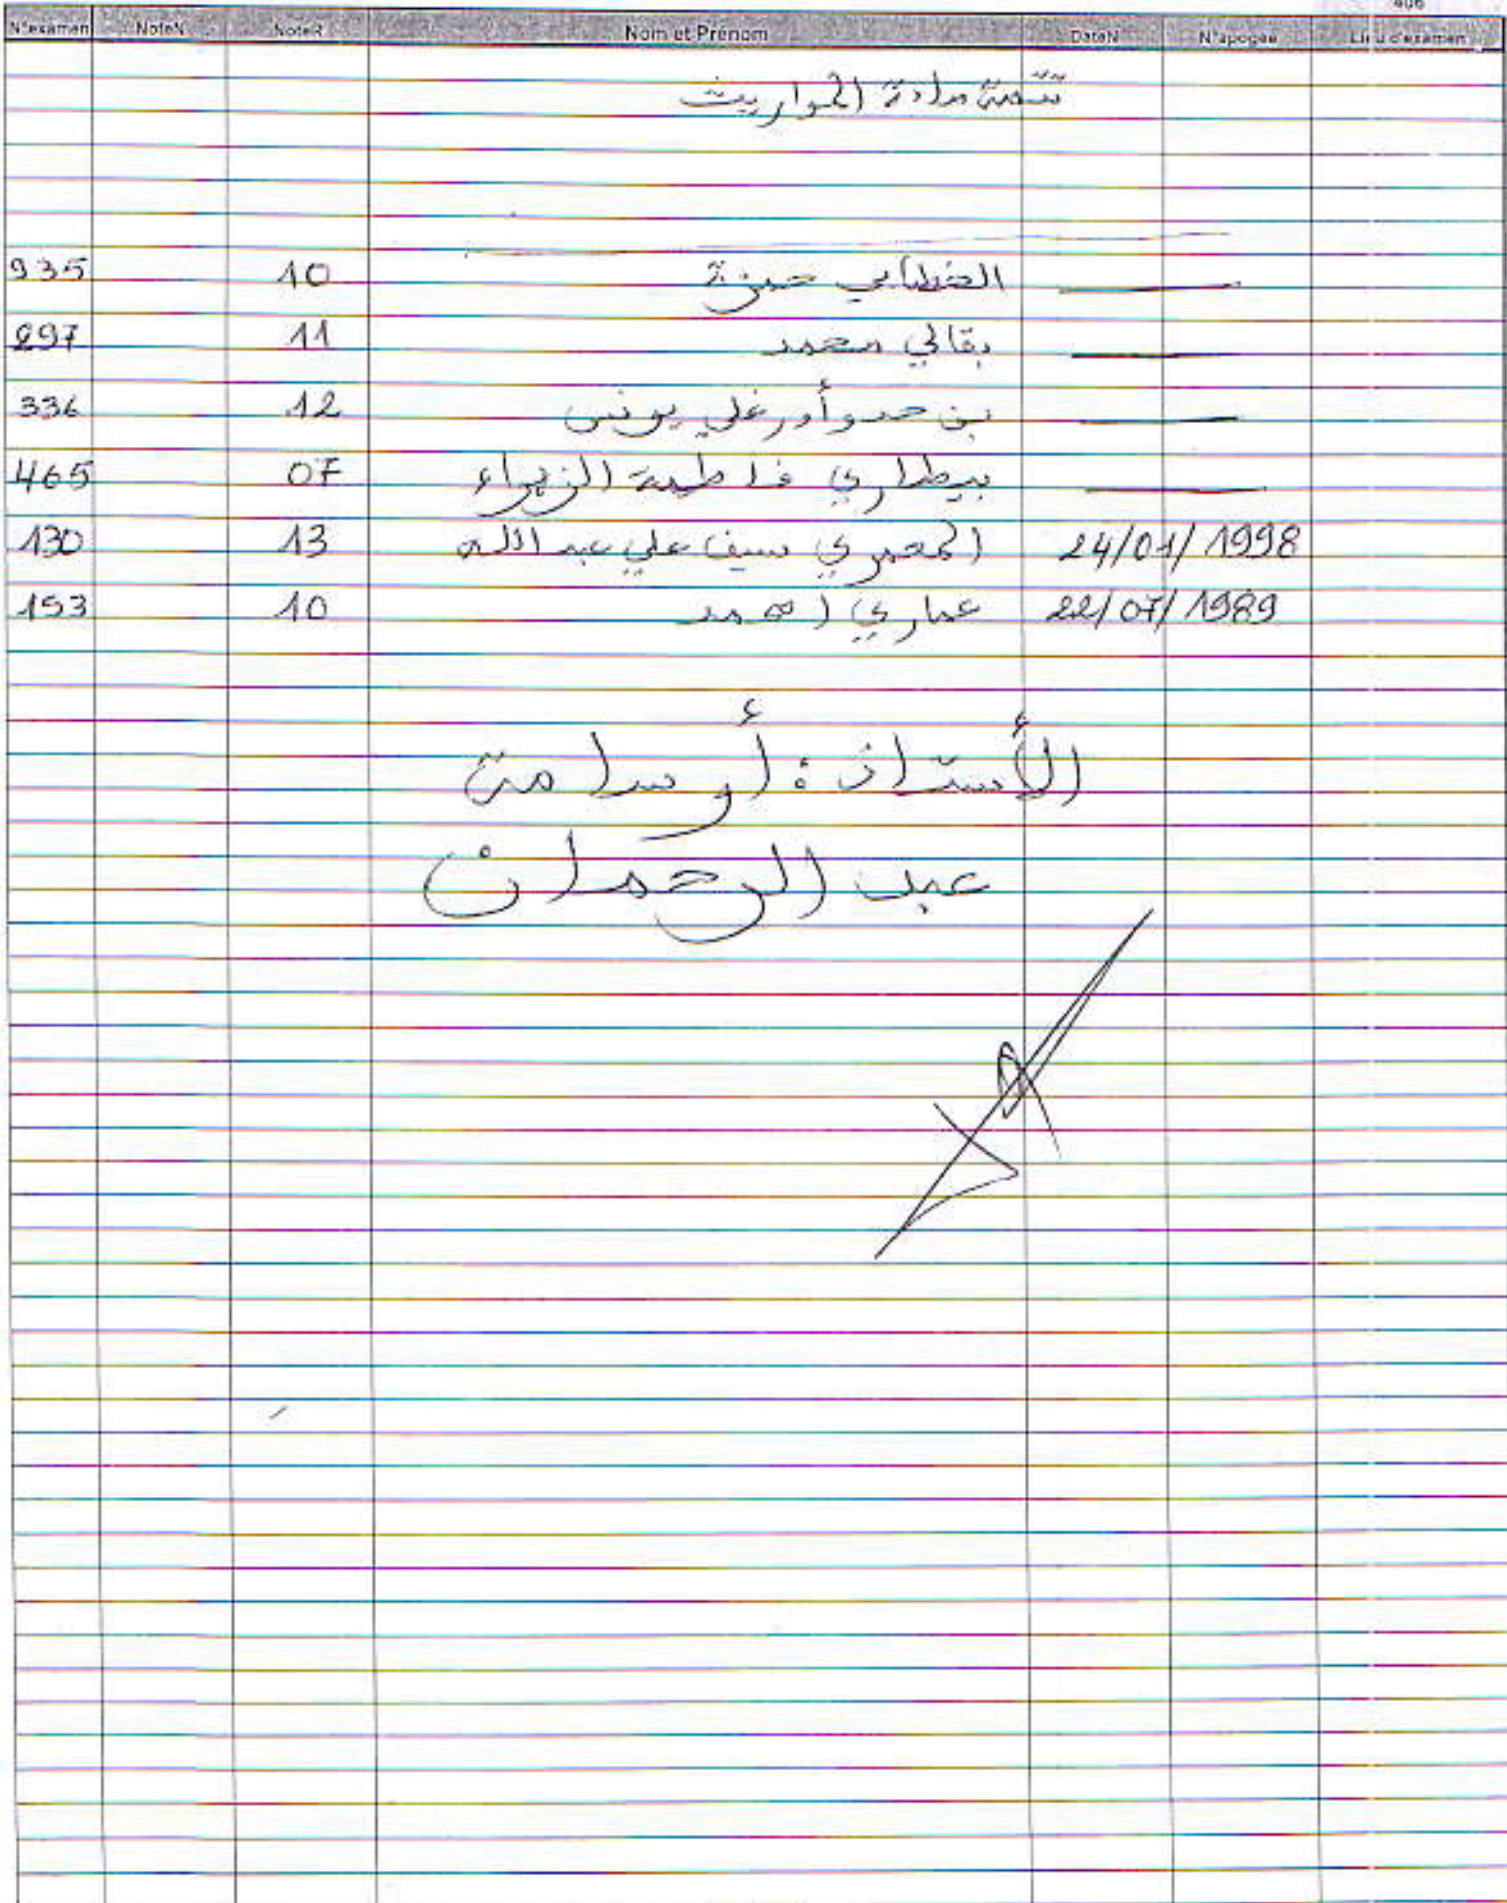 406
N°examen NoteN NoteR Nom et Prénom DateN N°apogee Lieu d'examen
تتمة مادة المواريث
935 10 الخطابي حمزة
297 11 بقالي محمد
336 12 بن حدو أدرغلي يونس
465 07 بيطاري فاطمة الزهراء
130 13 المعمري سيف علي عبد الله 24/01/1998
153 10 عماري احمد 22/07/1989
الأستاذ: أوسامة
عبد الرحمان